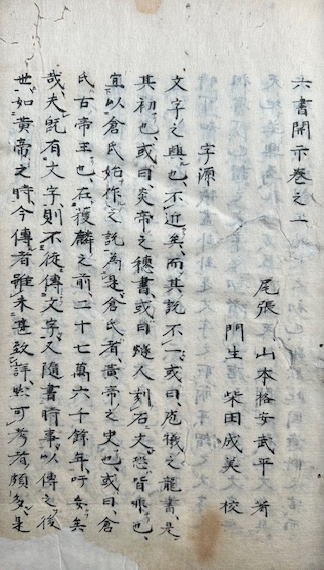 六書開示巻之一
尾張 山本格安武平著
門生 柴田成美校
字源
文字之興也、不近矣、而其説不一、或曰庖犠之龍書是
其初也、或曰炎帝之穂書或曰燧人刻石文、恐皆非也、
宜以倉氏始作之説為是、倉氏者黄帝之史也、或曰、倉
氏古帝王也、在獲麟之前、二十七萬六千餘年、吁妄矣
哉、夫既有文字、則不従傳文字、又随書時事、以傳之後
世、如黄帝之時、今傳者雖未甚致詳、然可考者頗多、是